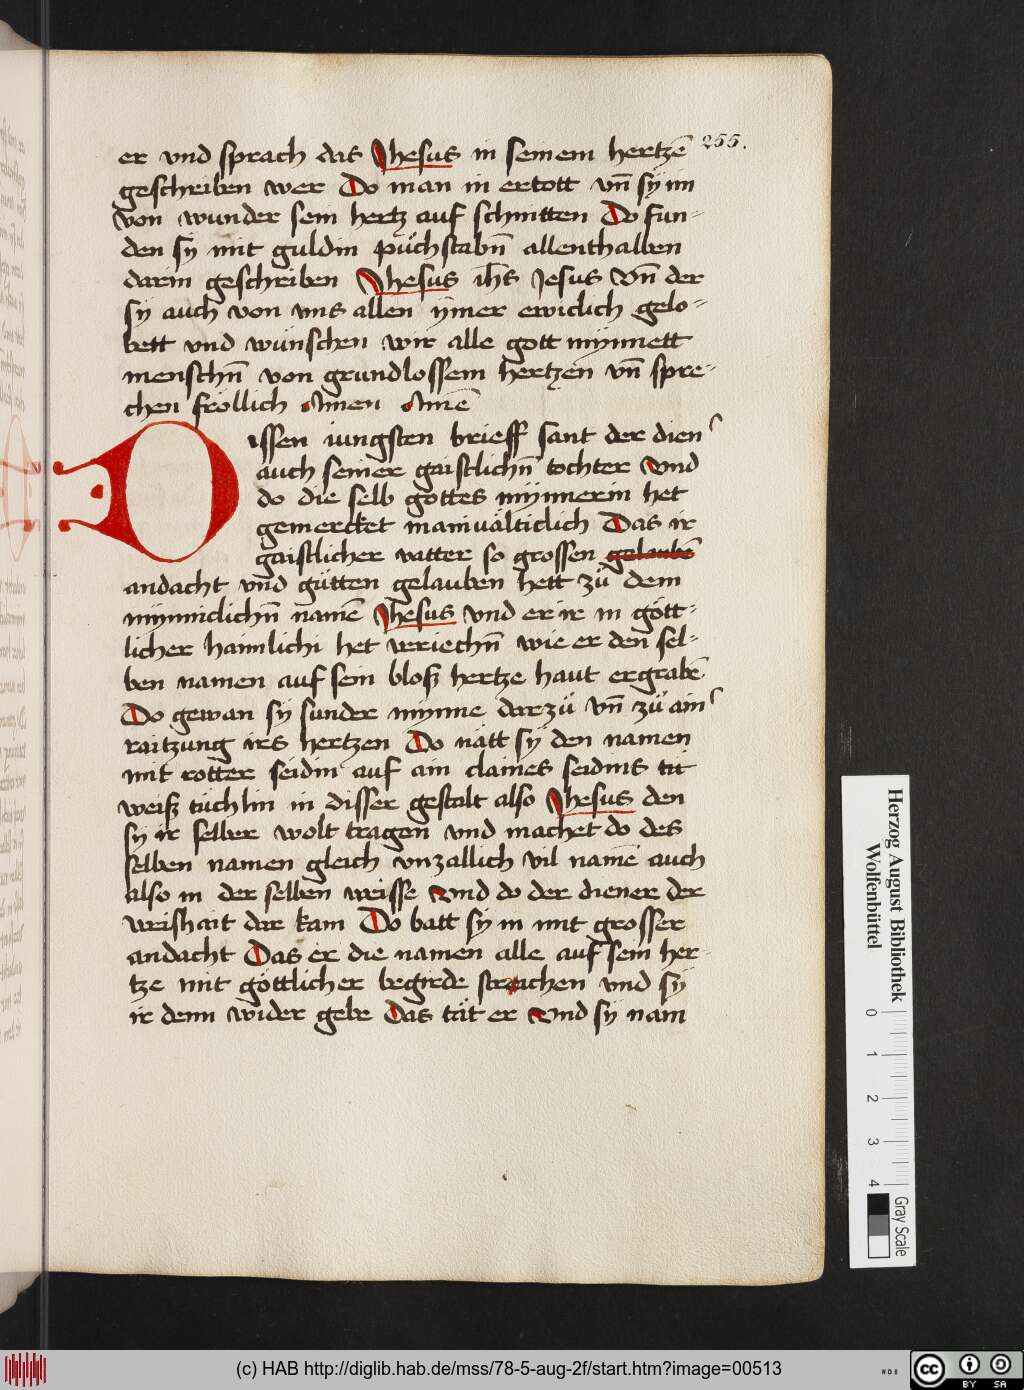 255.
er vnd sprach das Jhesus in seinem hertzē
geschriben wer Do man in ertott vn̄ sÿ im
von wunder sein hertz auf schnitten Do fun=
den sÿ mit guldin půchstabn̄ allenthalben
darin geschriben Jhesus ih̄s Jesus Vn̄ der
sÿ auch von vns allen ÿmer ewiclich gelo=
bett vnd wünschen wir alle gott mÿnnett
menschn̄ von grundlossem hertzen vn̄ spre=
chen frölich Amen Amē
Dissen iungsten brieff sant der dien
auch seiner gaistlichn̄ tochter Vnd
do die selb gottes mÿnnerin het
gemercket manivälticlich Das ir
gaistlicher vatter so grossen gelaubē
andacht vnd gůtten gelauben hett zů dem
mÿnniclichn̄ namē Jhesus vnd er ir in gött=
licher haimlichi het veriechn̄ wie er den sel=
ben namen auf sein blosz hertze haut ergrabē
Do gewan sÿ sunder mÿnne darzů vn̄ zů ain
raitzung irs hertzen Do nätt sÿ den namen
mit rotter seidin auf ain claines seidins tit
weisz tüchlin in disser gestalt also Jhesus den
sÿ ir selber wolt tragen vnd machet do des
selben namen gleich vnzallich vil namē auch
also in der selben weisse Vnd do der diener der
weishait dar kam Do batt sÿ in mit grosser
andacht Das er die namen alle auf sein her=
tze mit göttlicher begirde straichen vnd sÿ
ir denn wider gebe Das tät er Vnd sÿ nam
Herzog August Bibliothek
Wolfenbüttel
0
1
2
3
4
Gray Scale
(c) HAB http://diglib.hab.de/mss/78-5-aug-2f/start.htm?image=00513
WDB
cc
BY SA